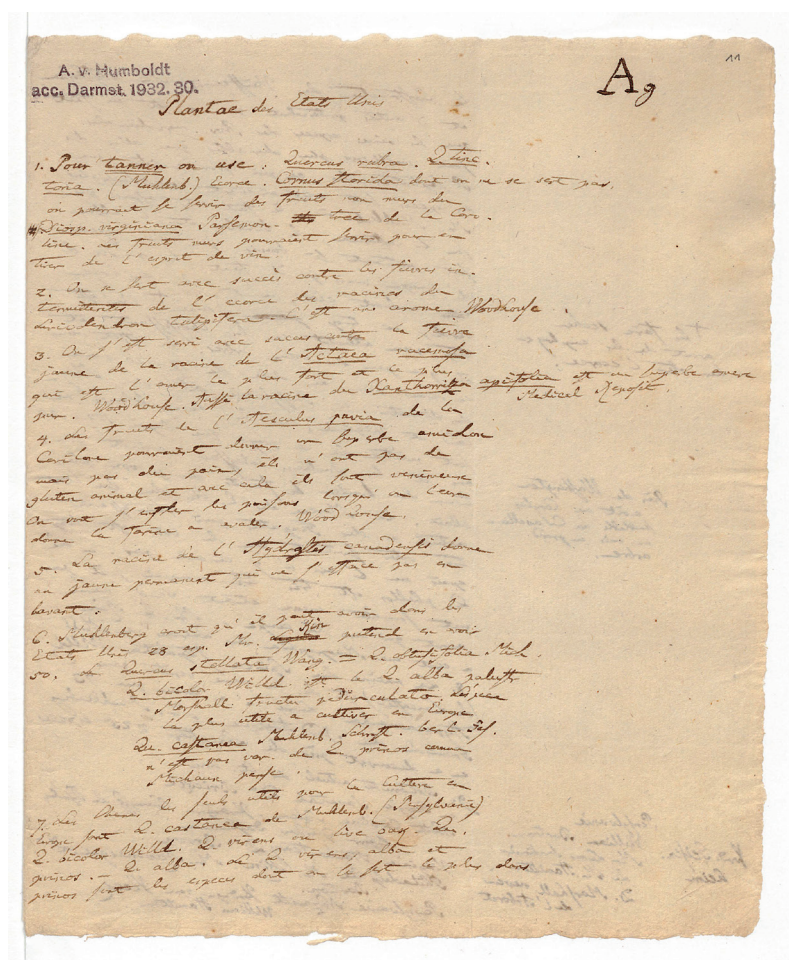 11
A. v. Humboldt
acc. Darmst. 1932. 30.
Ag
Plantae des Etats Unis
1. Pour tanner on use : Quercus rubra. Q. tinc-
toria. (Muhlenb.) Ecorce. Cornus florida dont on ne se sert pas.
on pourrait se servir des fruits non murs du
Diosp. virginiana Parsemon- tree de la Caro-
line. Les fruits murs pourraient servir pour en
tier de l'esprit de vin
2. On se sert avec succès contre les fievres in-
termitentes de l'ecorce des racines du
Liriodendron tulipifera. C'est un arome. Woodhouse.
3. On s'est servi avec succes contre la fievre
jaune de la racine de l'Actaea racemosa
qui est l'amer le plus fort et le plus
pur. Woodhouse. Aussi la racine du Xanthorriza apiifolia est un superbe amere
Medical Reposit.
4. Les fruits de l'Aesculus pavia de la
Caroline pourraient donner un superbe amidon
mais pas du pain, ils n'ont pas de
gluten animal et avec cela ils sont venimeuse
On voit s'enfler les poissons lorsqu'on leur
donne la farine a avaler. Woodhouse.
5. La racine de l'Hydrastes canadensis donne
un jaune permanent qui ne s'efface pas en
lavant.
6. Muhlenberg croit qu'il peut avoir dans les
Etats Unis 28 esp. Mr. Kin pretend en avoir
50. Le Quercus stellata Wang. = Q. obtusifolia Mich.
Q. bicolor Willd. est le Q. alba palustr
Marshall fructu pedunculato. Espece
la plus utile a cultiver en Europe
Qu. castanea Muhlenb. Schrift. berl. Ges.
n'est pas var. de Qu. prinos comme
Michaux pense.
7. Les chenes les seuls utils pour la culture en
Europe sont Q. castanea de Muhlenb. (Pensylvanie)
Q. bicolor Willd. Q. virens ou live oak. Qu.
prinos. – Q. alba. Le Q. virens, alba et
prinos sont les especes dont on se sert le plus dans